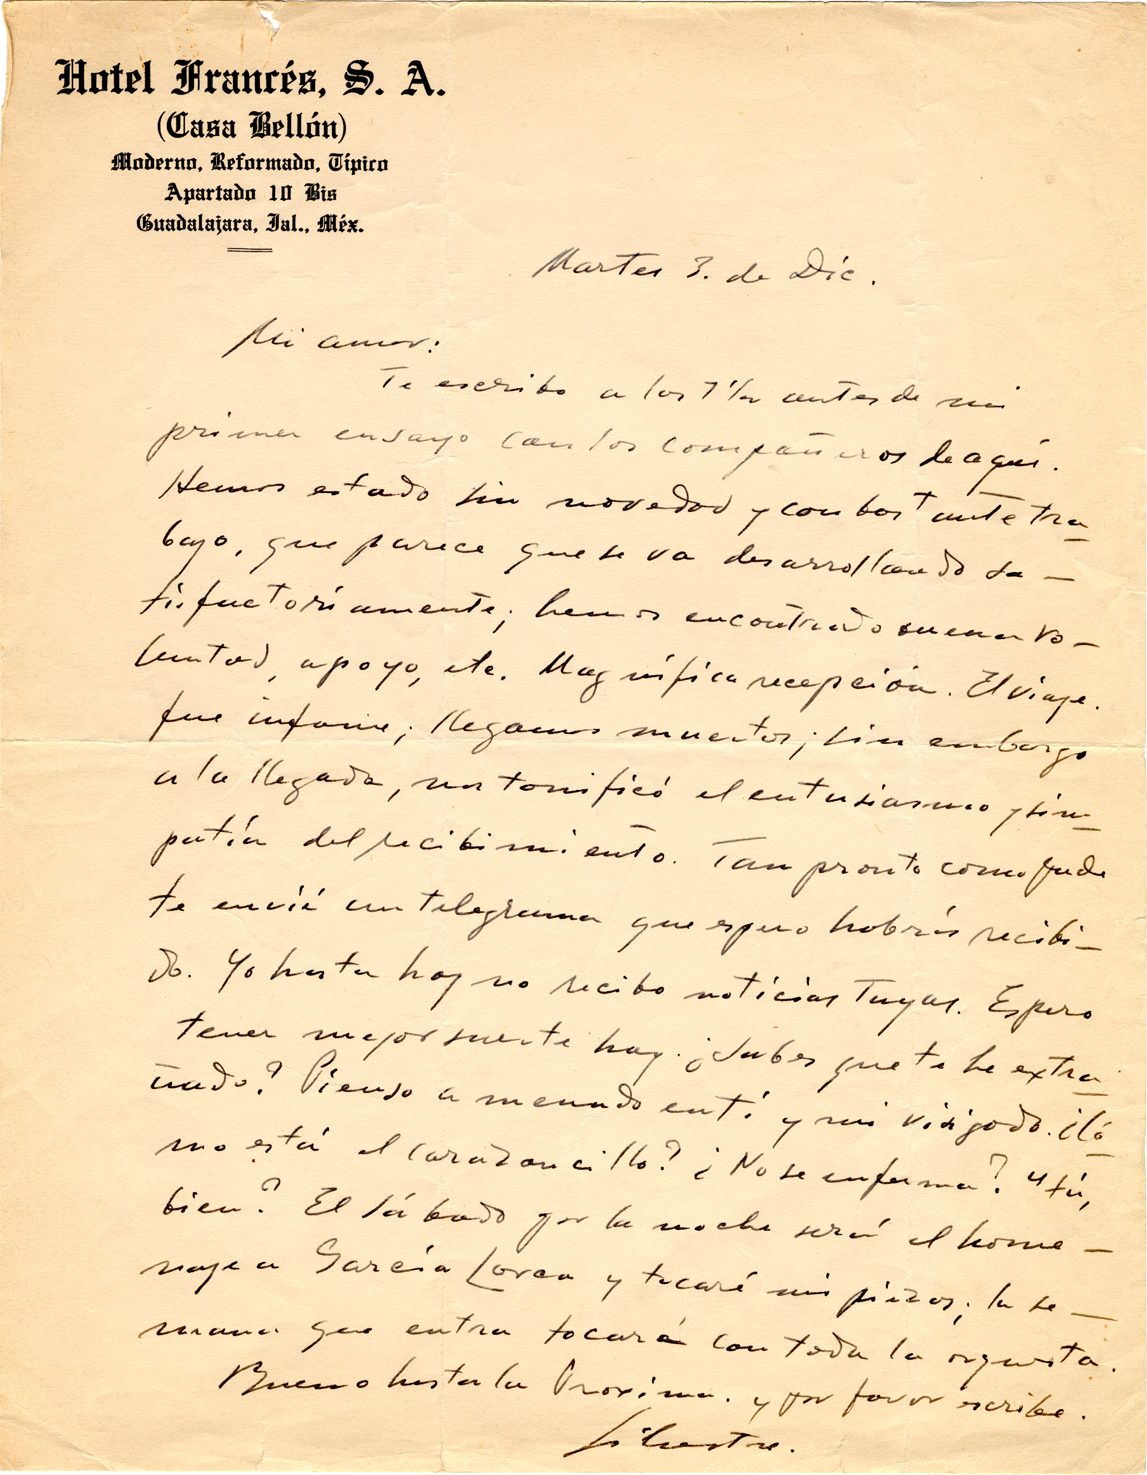 Hotel Francés, S. A.
(Casa Bellón)
Moderno, Reformado, Típico
Apartado 10 Bis
Guadalajara, Jal., Méx.
Martes 3. de Dic.
Mi amor:
Te escribo a los 7 antes de mi
primer ensayo con los compañeros de aquí.
Hemos estado sin novedad y con bastante tra-
bajo, que parece que se va desarrollando sa-
tisfactoriamente; hemos encontrado buena vo-
luntad, apoyo, etc. Magnífica recepción. El viaje
fue infame; llegamos muertos; sin embargo
a la llegada, nos tonificó el entusiasmo y sim-
patía del recibimiento. Tan pronto como pude
te envié un telegrama que espero habrás recibi-
do. Yo hasta hoy no recibo noticias tuyas. Espero
tener mejor suerte hoy. ¿Sabes que te he extra-
ñado? Pienso a menudo en tí y mi visigodo. ¿Có-
mo está el corazoncillo? ¿No se enferma? Y tú,
bien? El sábado por la noche será el home-
naje a García Lorca y tocaré mis piezas; la se-
mana que entra tocaré con toda la orquesta.
Bueno hasta la Proxima. y por favor escribe.
Silvestre.